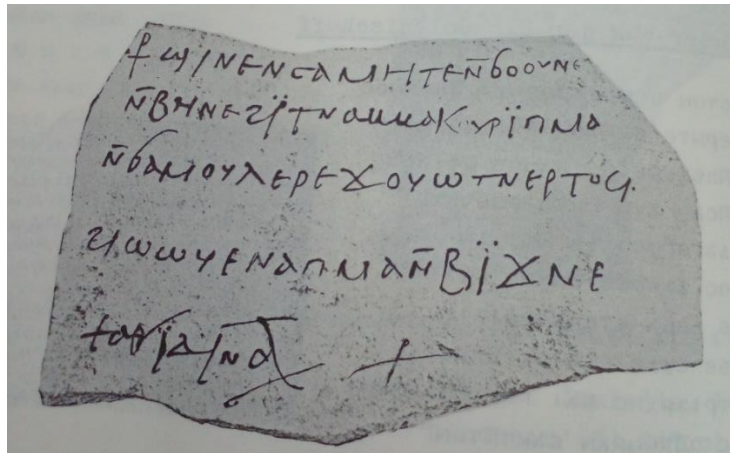 ⳨ ϣⲓⲛⲉⲛⲥⲁⲙⲏⲧⲉⲛ̄ϭⲟⲟⲩⲛⲉ
ⲛ̄ⲃⲏⲛⲉϩⲓ̈ⲧⲛⲁⲙⲙⲁⲕⲩⲣⲓ̈ⲡⲙⲁ
ⲛ̄ϭⲁⲙⲟⲩⲗⲉⲣⲉϫⲟⲩⲱⲧⲛⲉⲣⲧⲟϥ
ϩⲓⲱⲱϥⲉⲛⲁⲡⲙⲁⲛ̄ⲃⲓ̈ϫⲛⲉ